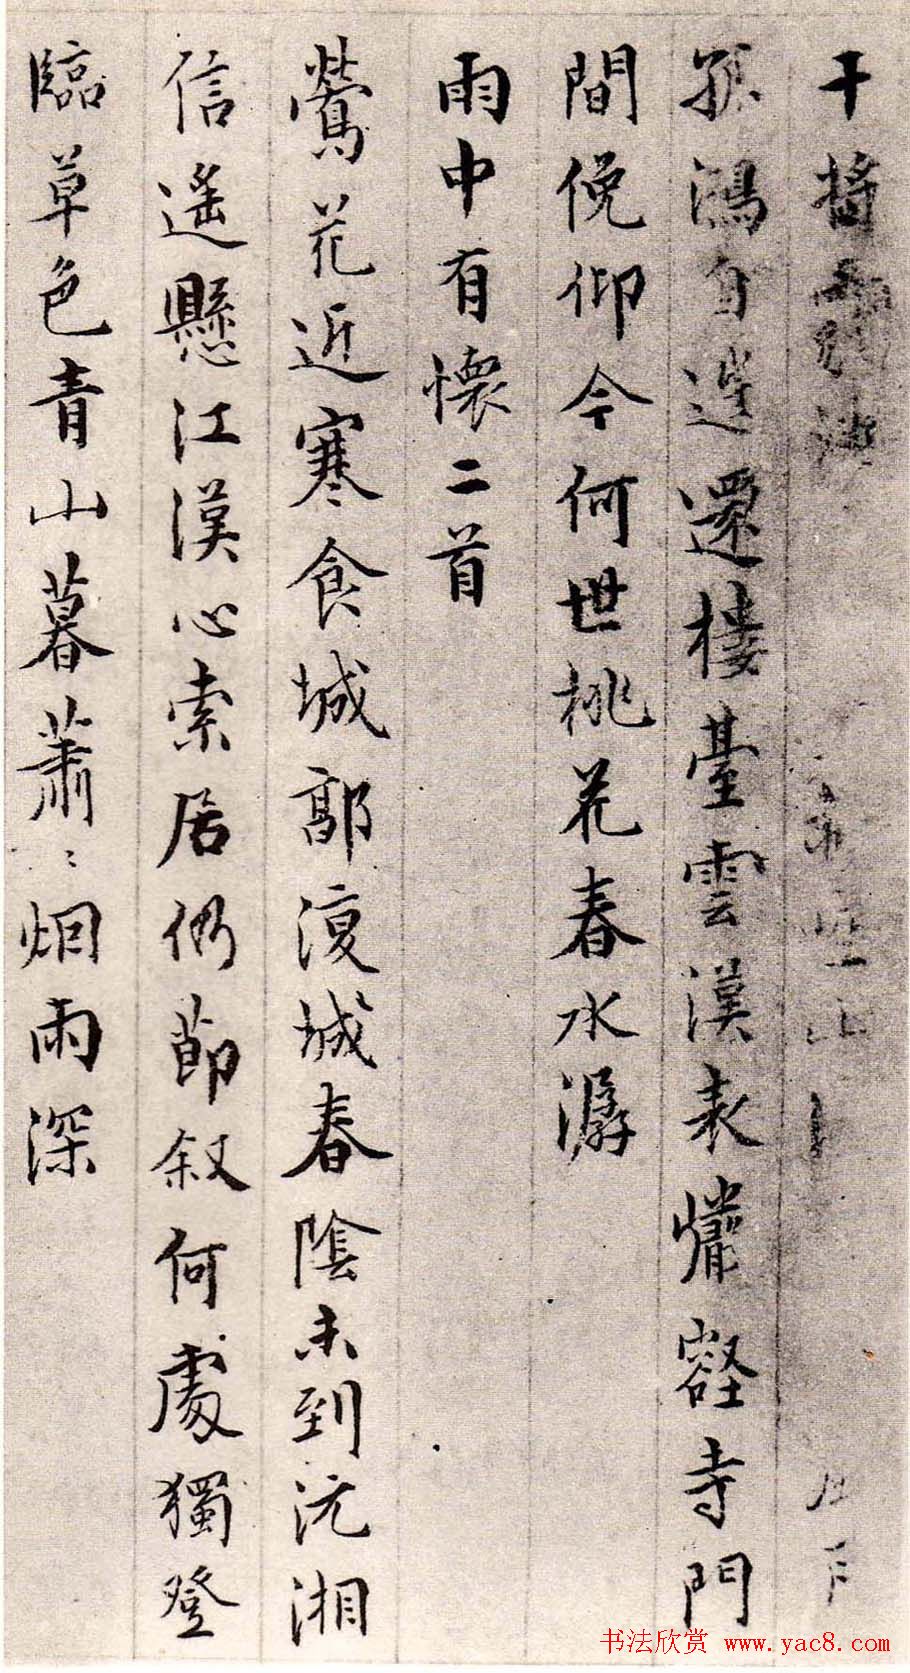 干將
孤鴻自往還樓臺雲漢表幰壑寺門
間俛仰今何世桃花春水潺
雨中有懷二首
鶯花近寒食城郭復城春陰未到沅湘
信遙懸江漢心索居仍節叙何處獨登
臨草色青山暮蕭〻烟雨深
书法欣赏 www.yac8.com